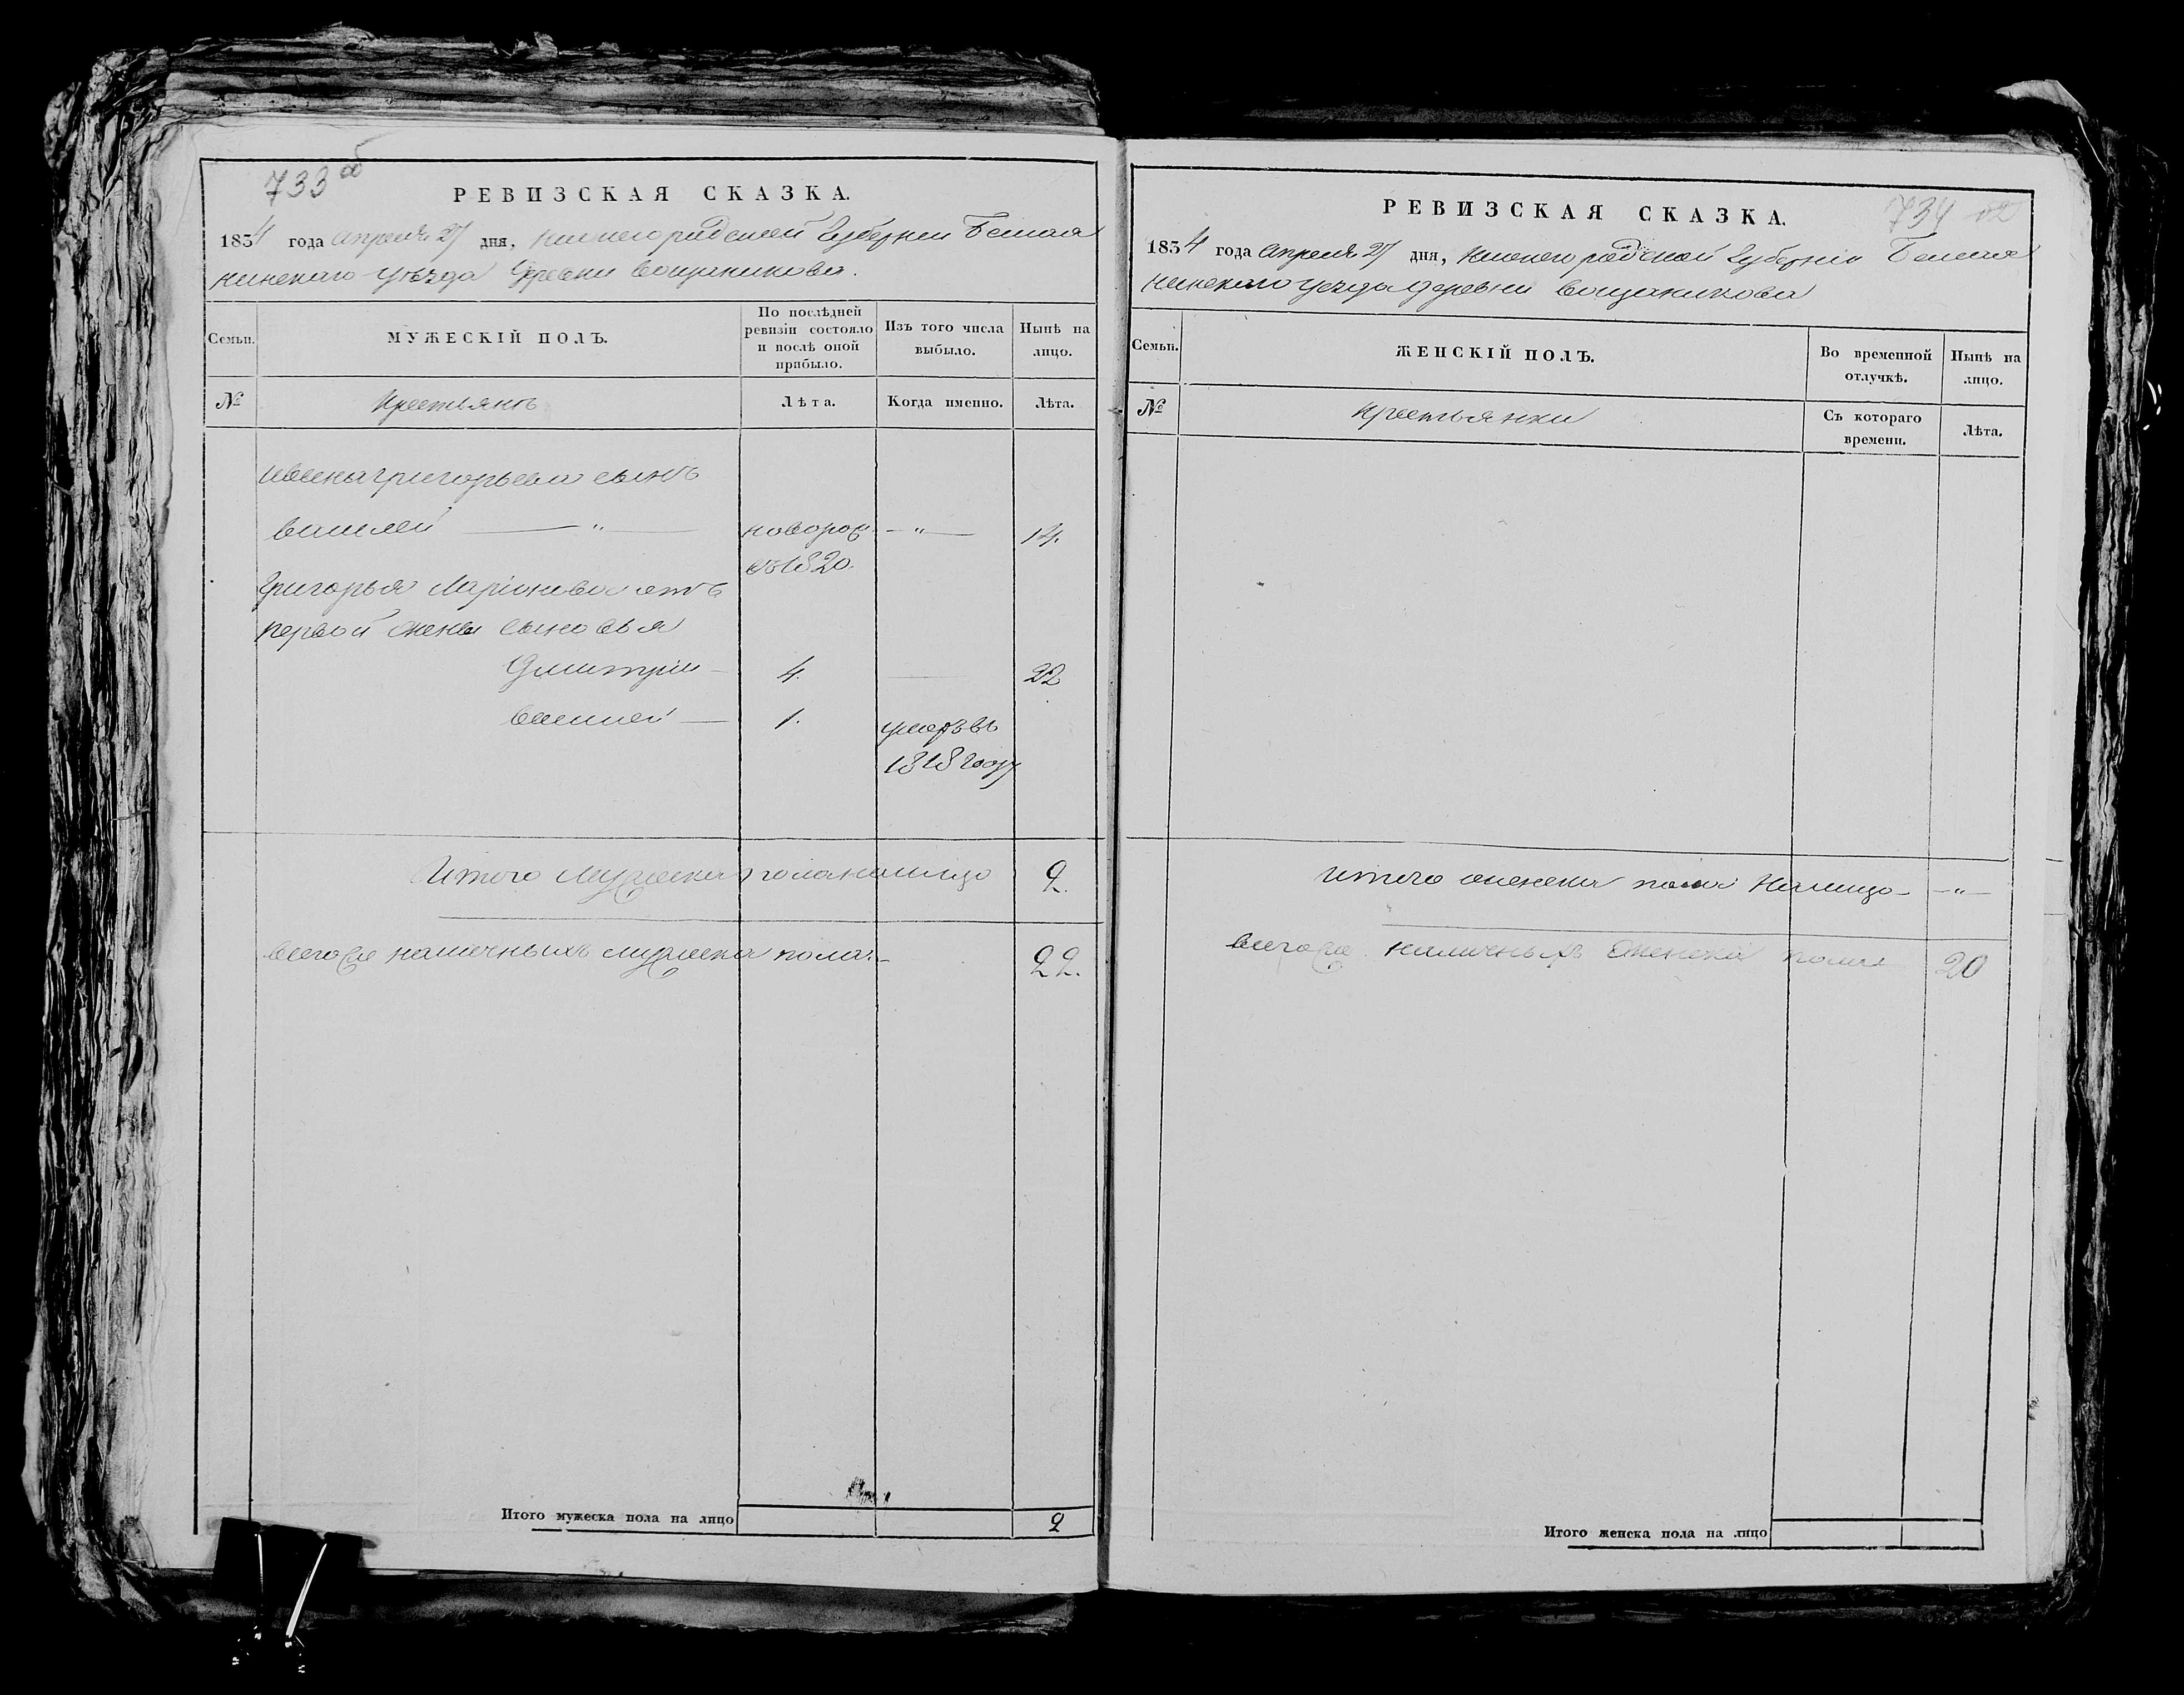 733 об
РЕВИЗСКАЯ СКАЗКА.
1834 года Апреля 27 дня, Нижегородской Губернии Балах
нинскаго уѣзда Деревни Вощаникова.
Семьи. МУЖЕСКІЙ ПОЛЪ. По послѣдней ревизіи состояло и послѣ оной прибыло. Изъ того числа выбыло. Нынѣ на лицо.
№ Крестьянъ Лѣта. Когда именно. Лѣта.
Ивана Григорьева сынъ
Василей — " — новорож. — " — 14.
въ 1820.
Григорья Ларионова отъ
первой жены сыновья
Дмитрий 4. — 22
Василей — 1. умеръ въ
1818 году
Итого Мужеска пола налицо 2.
Всего же наличныхъ мужеска пола. — 22.
Итого мужеска пола на лицо 2
734
РЕВИЗСКАЯ СКАЗКА.
1834 года Апреля 27 дня, Нижегородской Губерніи Балах
нинскаго уезда деревни Вощаникова
Семьи. ЖЕНСКІЙ ПОЛЪ. Во временной отлучкѣ. Нынѣ на лицо.
№ Крестьянки Съ котораго времени. Лѣта.
Итого женска пола налицо — — " —
Всего же наличныхъ женска пола 20
Итого женска пола на лицо